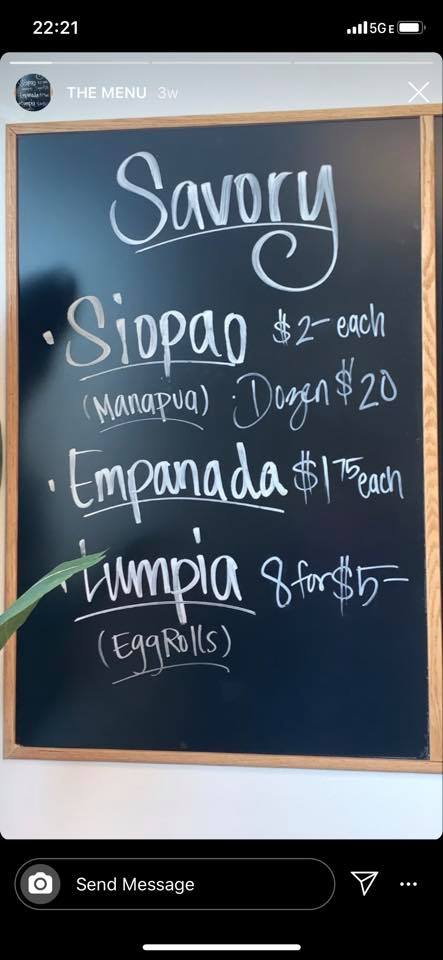 22:21 5GE
THE MENU 3w
Savory
· Siopao $2- each
(Manapua) · Dozen $20
· Empanada $1 75 each
· Lumpia 8 for $5-
(EggRolls)
Send Message